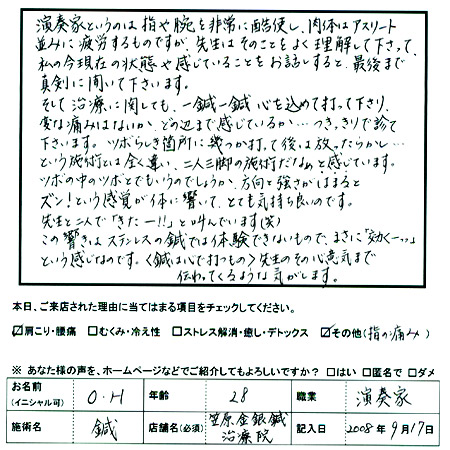 演奏家というのは指や腕を非常に酷使し、肉体はアスリート
並みに疲労するものですが、先生はそのことをよく理解して下さって、
私の今現在の状態や感じていることをお話しすると、最後まで
真剣に聞いて下さいます。
そして治療に関しても、一鍼一鍼心を込めて打って下さり、
変な痛みはないか、どの辺まで感じているか…つきっきりで診て
下さいます。ツボらしき箇所に幾つか打って後は放ったらかし…
という施術とは全く違い、二人三脚の施術だなぁと感じています。
ツボの中のツボとでもいうのでしょうか、方向と強さがはまると
ズン!という感覚が体に響いて、とても気持ち良いのです。
先生と二人で「きたー!!」と叫んでいます(笑)
この響きはステンレスの鍼では体験できないもので、まさに「効くーっ」
という感じなのです。〈鍼は心で打つもの〉先生のその心意気まで
伝わってくるような気がします。
本日、ご来店された理由に当てはまる項目をチェックしてください。
☑肩こり・腰痛 □むくみ・冷え性 □ストレス解消・癒し・デトックス ☑その他(指の痛み)
※ あなた様の声を、ホームページなどでご紹介してもよろしいですか? □はい □匿名で □ダメ
お名前(イニシャル可) O.H 年齢 28 職業 演奏家
施術名 鍼 店舗名(必須) 笠原金銀鍼治療院 記入日 2008年9月17日